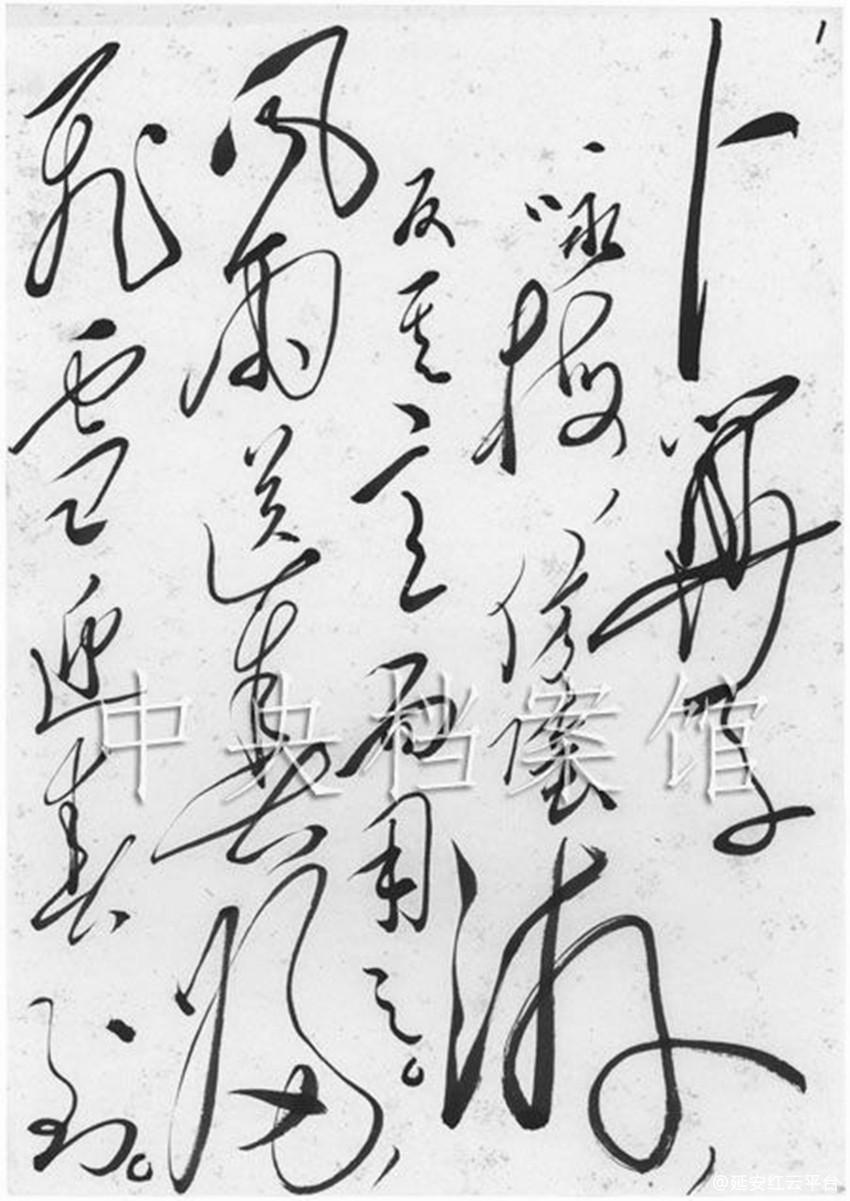 1
卜算子
、咏梅、仿陆游、
反其意而用之。
风雨送春归、
飞雪迎春到。
中央档案馆
@延安红云平台